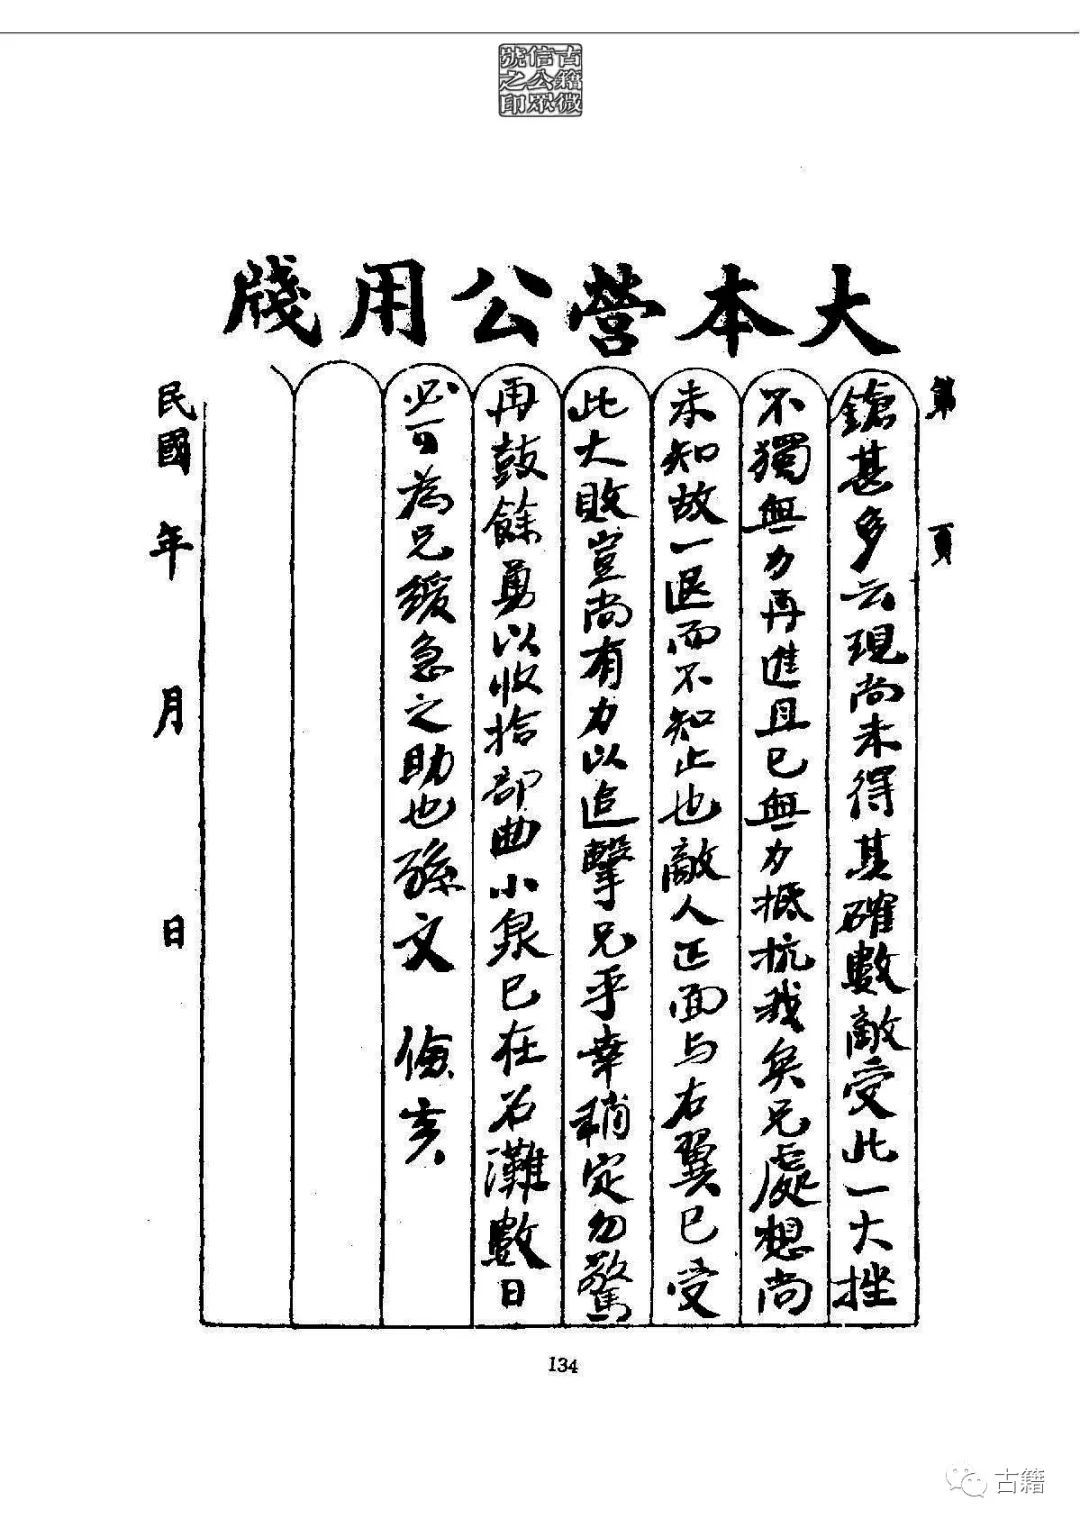 古籍微
信公眾
號之印
大本營公用牋
第 頁
鎗甚多云現尚未得其確數敵受此一大挫
不獨無力再進且已無力抵抗我矣兄處想尚
未知故一退而不知止也敵人正面与右翼已受
此大敗豈尚有力以追擊兄乎幸稍定勿驚
再鼓餘勇以收拾部曲小泉已在石灘數日
必可為兄緩急之助也孫文 儉亥
民國 年 月 日
134
古籍